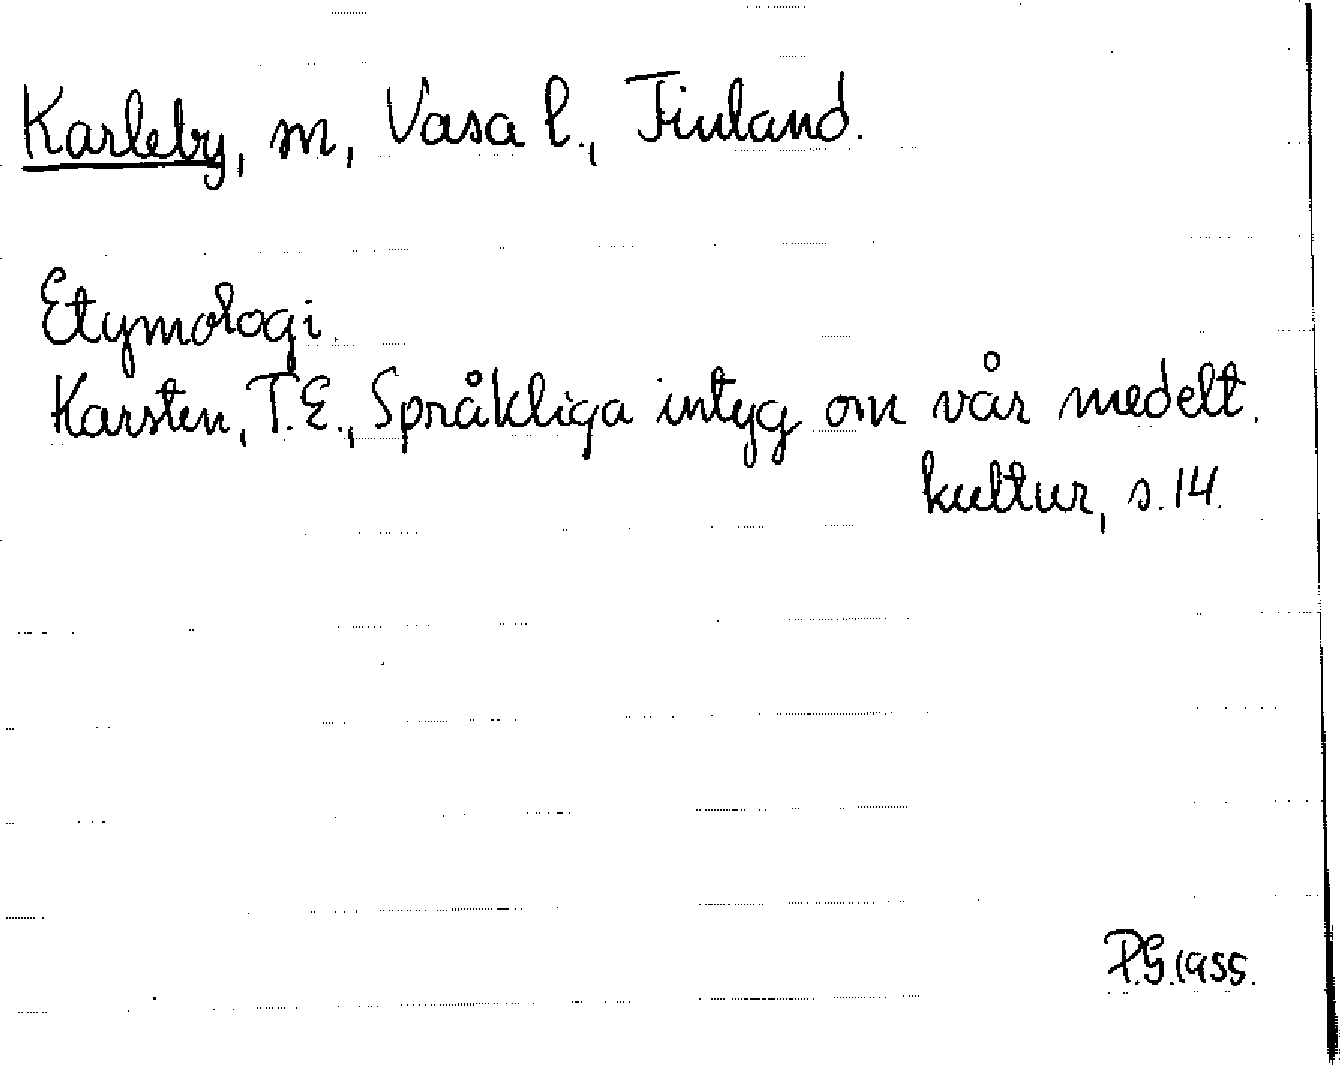 Karleby, m, Vasa l., Finland.
Etymologi.
Karsten, T.E., Språkliga intyg om vår medelt.
kultur, s.14.
P.G.1955.